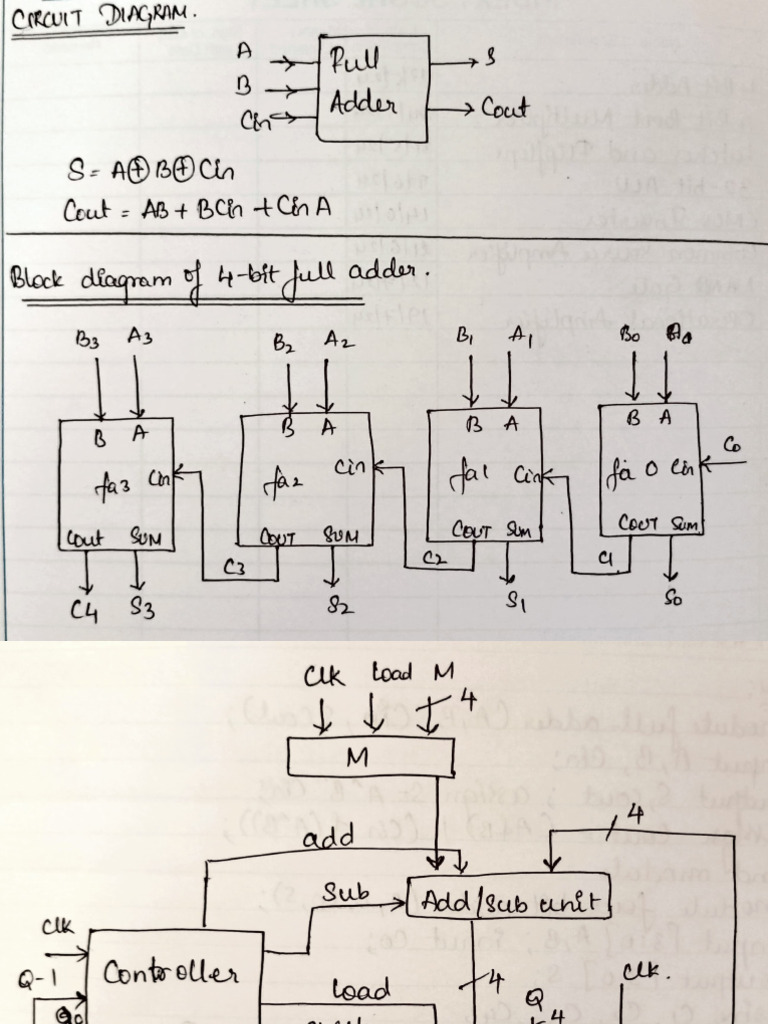 CIRCUIT DIAGRAM.
A
B
Cin
Full
Adder
S
Cout
S = A⊕B⊕Cin
Cout = AB + BCin + CinA
Block diagram of 4-bit full adder.
B3 A3 B2 A2 B1 A1 B0 A0
B A B A B A B A
fa3 Cin fa2 Cin fa1 Cin fa 0 Cin C0
Cout SUM COUT SUM COUT SUM COUT SUM
C3 C2 C1
C4 S3 S2 S1 S0
Clk Load M
4
M
4
add
Sub
Add/Sub unit
Clk
Controller
Q-1
Q0
Load
4
Q
4
Clk.